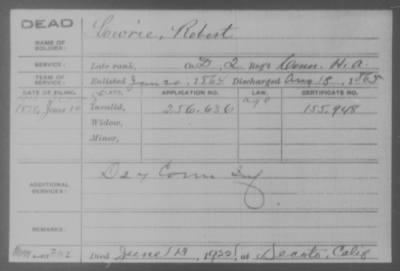 DEAD
NAME OF SOLDIER:
Lowrie, Robert
SERVICE:
Late rank, Co. D, 2 Reg't Conn. H. a.
TERM OF SERVICE:
Enlisted Discharged Aug 18, 1865
DATE OF FILING. CLASS. APPLICATION NO. LAW. CERTIFICATE NO.
Invalid, 256.636 155.948
Widow,
Minor,
ADDITIONAL SERVICES:
D 24 Conn Inf
REMARKS:
Died June 19, at Decoto, Calif